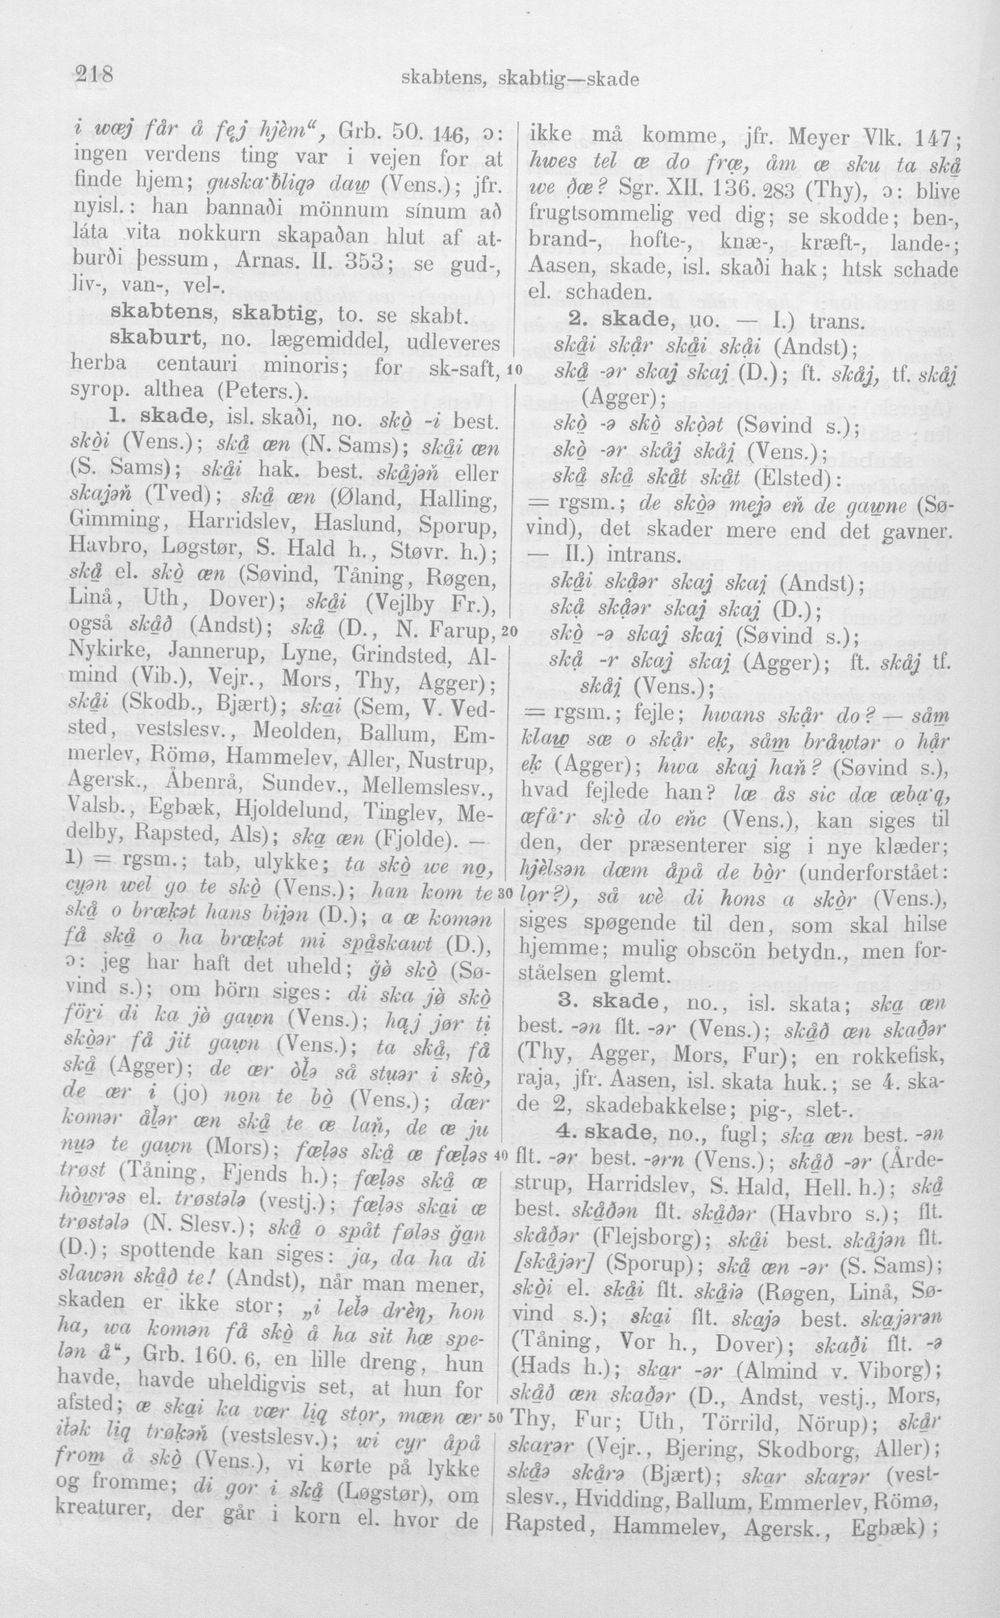 218
skabtens, skabtig—skade
i wæj får å fȩj hjèm“, Grb. 50. 146, ɔ:
ingen verdens ting var i vejen for at
finde hjem; guska·bliqə daw̱ (Vens.); jfr.
nyisl.: han bannaði mönnum sínum að
láta vita nokkurn skapaðan hlut af at-
burði þessum, Arnas. II. 353; se gud-,
liv-, van-, vel-.
skabtens, skabtig, to. se skabt.
skaburt, no. lægemiddel, udleveres
herba centauri minoris; for sk-saft,
syrop. althea (Peters.).
1. skade, isl. skaði, no. skò̱ -i best.
skò̱i (Vens.); skå̱ æn (N. Sams); skå̱i æn
(S. Sams); skå̱i hak. best. skå̱jəň eller
skajəň (Tved); skå̱ æn (Øland, Halling,
Gimming, Harridslev, Haslund, Sporup,
Havbro, Løgstør, S. Hald h., Støvr. h.);
skå̱ el. skò̱ æn (Søvind, Tåning, Røgen,
Linå, Uth, Dover); skå̱i (Vejlby Fr.),
også skå̱ð (Andst); skå̱ (D., N. Farup,
Nykirke, Jannerup, Lyne, Grindsted, Al-
mind (Vib.), Vejr., Mors, Thy, Agger);
skå̱i (Skodb., Bjært); ska̱i (Sem, V. Ved-
sted, vestslesv., Meolden, Ballum, Em-
merlev, Römø, Hammelev, Aller, Nustrup,
Agersk., Åbenrå, Sundev., Mellemslesv.,
Valsb., Egbæk, Hjoldelund, Tinglev, Me-
delby, Rapsted, Als); ska̱ æn (Fjolde). —
1) = rgsm.; tab, ulykke; ta skò̱ we no̱,
cyən wel go te skò̱ (Vens.); han kom te
skå̱ o brækət hans bijən (D.); a æ komən
få skå̱ o ha brækət mi spå̱skawt (D.),
ɔ: jeg har haft det uheld; ğø̀ skò̱ (Sø-
vind s.); om börn siges: di ska jø̀ skò̱
föri di ka jø̀ gaw̱n (Vens.); ha̱j jør ti̱
skò̱ər få jit gaw̱n (Vens.); ta skå̱, få
skå̱ (Agger); de ær òl̆ə så stuər i skò̱,
de ær i (jo) no̱n te bò̱ (Vens.); dær
komər ål̆ər æn skå̱ te æ laň, de æ ju
nuə te gaw̱n (Mors); fæl̆əs skå̱ æ fæl̆əs
trøst (Tåning, Fjends h.); fæl̆əs skå̱ æ
hòw̱rəs el. trøstələ (vestj.); fæl̆əs ska̱i æ
trøstələ (N. Slesv.); skå̱ o spåt føləs ğa̱n
(D.); spottende kan siges: ja, da ha di
slawən skå̱ð te! (Andst), når man mener,
skaden er ikke stor; „i lel̆ə drèŋ, hon
ha, wa komən få skò̱ å ha sit hæ spe-
lən å“, Grb. 160. 6, en lille dreng, hun
havde, havde uheldigvis set, at hun for
afsted; æ ska̱i ka vær liq stor, mæn ær
itək liq trøkəň (vestslesv.); wi cyr åpå
from̱ å skò̱ (Vens.), vi kørte på lykke
og fromme; di gor i skå̱ (Løgstør), om
kreaturer, der går i korn el. hvor de
ikke må komme, jfr. Meyer Vlk. 147;
hwes tel æ do fræ, åm æ sku ta skå̱
we ðæ? Sgr. XII. 136. 283 (Thy), ɔ: blive
frugtsommelig ved dig; se skodde; ben-,
brand-, hofte-, knæ-, kræft-, lande-;
Aasen, skade, isl. skaði hak; htsk schade
el. schaden.
2. skade, uo. — I.) trans.
skå̱i skå̱r skå̱i skå̱i (Andst);
10 skå̱ -ər skaj skaj (D.); ft. skå̱j, tf. skå̱j
(Agger);
skò̱ -ə skò̱ skò̱ət (Søvind s.);
skò̱ -ər skå̱j skå̱j (Vens.);
skå̱ skå̱ skå̱t skå̱t (Elsted):
= rgsm.; de skò̱ə mejə eň de gaw̱ne (Sø-
vind), det skader mere end det gavner.
— II.) intrans.
skå̱i skå̱ər skaj skaj (Andst);
skå̱ skå̱ər skaj skaj (D.);
20 skò̱ -ə skaj skaj (Søvind s.);
skå̱ -r skaj skaj (Agger); ft. skå̱j tf.
skå̱j (Vens.);
= rgsm.; fejle; hwans skå̱r do? — såm̱
klaw̱ sæ o skå̱r ek, såm̱ bråwtər o hå̱r
ek (Agger); hwa skaj haň? (Søvind s.),
hvad fejlede han? læ ås sic dæ æba̱·q,
æfå·r skò̱ do eňc (Vens.), kan siges til
den, der præsenterer sig i nye klæder;
hjèlsən dæm åpå de bò̱r (underforstået:
30 lo̱r?), så wè di hons a skò̱r (Vens.),
siges spøgende til den, som skal hilse
hjemme; mulig obscön betydn., men for-
ståelsen glemt.
3. skade, no., isl. skata; ska̱ æn
best. -ən flt. -ər (Vens.); skå̱ð æn skaðər
(Thy, Agger, Mors, Fur); en rokkefisk,
raja, jfr. Aasen, isl. skata huk.; se 4. ska-
de 2, skadebakkelse; pig-, slet-.
4. skade, no., fugl; ska̱ æn best. -ən
40 flt. -ər best. -ərn (Vens.); skå̱ð -ər (Årde-
strup, Harridslev, S. Hald, Hell. h.); skå̱
best. skå̱ðən flt. skå̱ðər (Havbro s.); flt.
skå̱ðər (Flejsborg); skå̱i best. skå̱jən flt.
[skå̱jər] (Sporup); skå̱ æn -ər (S. Sams);
skò̱i el. skå̱i flt. skå̱iə (Røgen, Linå, Sø-
vind s.); ska̱i flt. skajə best. skajərən
(Tåning, Vor h., Dover); skaði flt. -ə
(Hads h.); ska̱r -ər (Almind v. Viborg);
skå̱ð æn skaðər (D., Andst, vestj., Mors,
50 Thy, Fur; Uth, Törrild, Nörup); skå̱r
skaṟər (Vejr., Bjering, Skodborg, Aller);
skå̱ə skå̱rə (Bjært); ska̱r skaṟər (vest-
slesv., Hvidding, Ballum, Emmerlev, Römø,
Rapsted, Hammelev, Agersk., Egbæk);